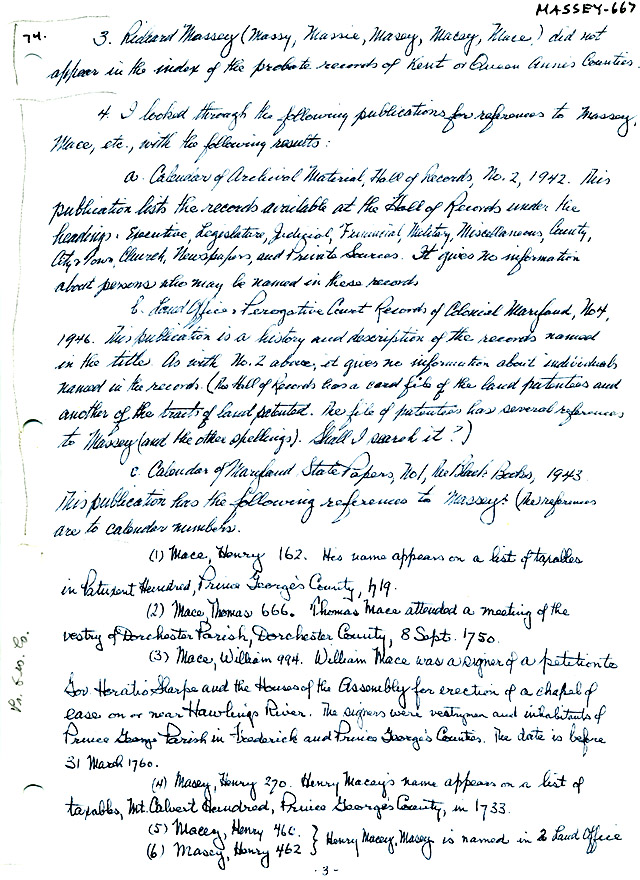 MASSEY-667
74.
3. Richard Massey (Massy, Massie, Masey, Macey, Mace) did not
appear in the index of the probate records of Kent or Queen Anne's Counties.
4. I looked through the following publications for references to Massey,
Mace, etc., with the following results:
a. Calendar of Archival Material, Hall of Records, No. 2, 1942. This
publication lists the records available at the Hall of Records under the
headings: Executive, Legislature, Judicial, Financial, Military, Miscellaneous, County,
City & Town, Church, Newspapers, and Private Sources. It gives no information
about persons who may be named in these records
b. Land Office & Perogative Court Records of Colonial Maryland, No 4,
1946. This publication is a history and description of the records named
in the title. As with No. 2 above, it gives no information about individuals
named in the records. (The Hall of Records has a card file of the land patentees and
another of the tracts of land patented. The file of patentees has several references
to Massey (and the other spellings). Shall I search it?)
c. Calendar of Maryland State Papers, No 1, The Black Books, 1943.
This publication has the following references to Massey: (The references
are to calendar numbers.
(1) Mace, Henry 162. His name appears on a list of taxables
in Patuxent Hundred, Prince George's County, 1719.
(2) Mace, Thomas 666. Thomas Mace attended a meeting of the
vestry of Dorchester Parish, Dorchester County, 8 Sept. 1750.
(3) Mace, William 994. William Mace was a signer of a petition to
Gov. Horatio Sharpe and the Houses of the Assembly for erection of a chapel of
ease on or near Hawlings River. The signers were vestrymen and inhabitants of
Prince George Parish in Frederick and Prince George's Counties. The date is before
31 March 1760.
Pr. Geo. Co.
(4) Macey, Henry 270. Henry Macey's name appears on a list of
taxables, Mt. Calvert Hundred, Prince George's County, in 1733.
(5) Macey, Henry 466.
(6) Masey, Henry 462 } Henry Macey, Masey is named in 2 Land Office
-3-